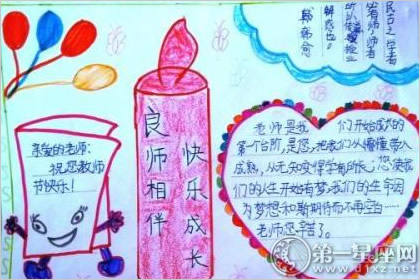 亲爱的老师：
祝您教师
节快乐！
良师相伴
快乐成长
古之学者
必有师。师者
所以传道授业
解惑也。
韩愈
老师是我们开始成功的
第一个台阶，是您，把我们从懵懂带入
成熟，从无知变得学有所长；您使我
们的人生开始有梦，我们的生字因
为梦想和斯期待而不再空白……
老师您辛苦了。
第一星座网
www.d1xz.net